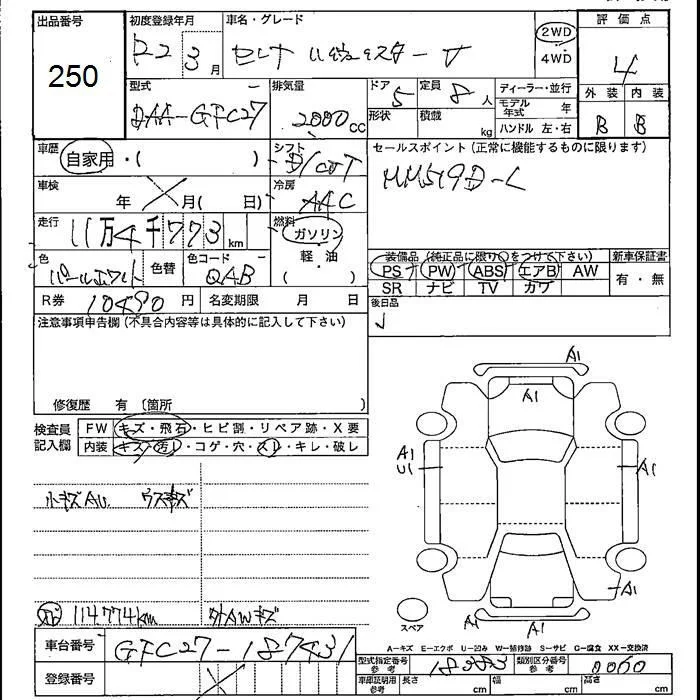 出品番号 初度登録年月 車名・グレード 2WD 評価点
250 R2 3月 セレナ ハイウェイスター V 4WD 4
型式 排気量 ドア 定員 ディーラー・並行 外装 内装
DAA-GFC27 2000cc 5 8人 モデル年式 年
形状 積載 kg ハンドル 左・右 B B
車歴 自家用・( ) シフト D/COLT セールスポイント(正常に機能するものに限ります)
車検 年 月( 日) 冷房 AAC MM519D-L
走行 11万4千773km 燃料 ガソリン
軽・油
( )
色 パールホワイト 色替 色コード QAB 装備品(純正品に限り○をつけて下さい) 新車保証書
PS PW ABS エアB AW 有・無
R券 10490円 名変期限 月 日 SR ナビ TV カワ
注意事項申告欄(不具合内容等は具体的に記入して下さい) 後日品
修復歴 有〔箇所 )
検査員 FW キズ・飛石・ヒビ割・リペア跡・X要
記入欄 内装 キズ・汚レ・コゲ・穴・スレ・キレ・破レ
A1
A1
A1
U1
A1
小キズAU ウスキズ
A1
114.774km 外AWキズ
スペア A1 A1
A-キズ E-エクボ U-凹み W-補修跡 S-サビ C-腐食 XX-交換済
車台番号 GFC27-187431 型式指定番号 参考 18383 類別区分番号 参考 0060
登録番号 車庫証明用 参考 長さ cm 幅 cm 高さ cm